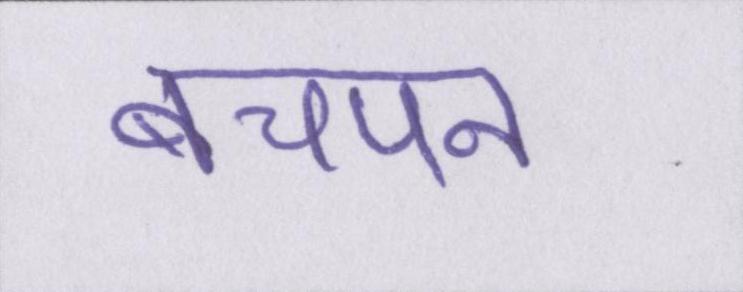 बचपन